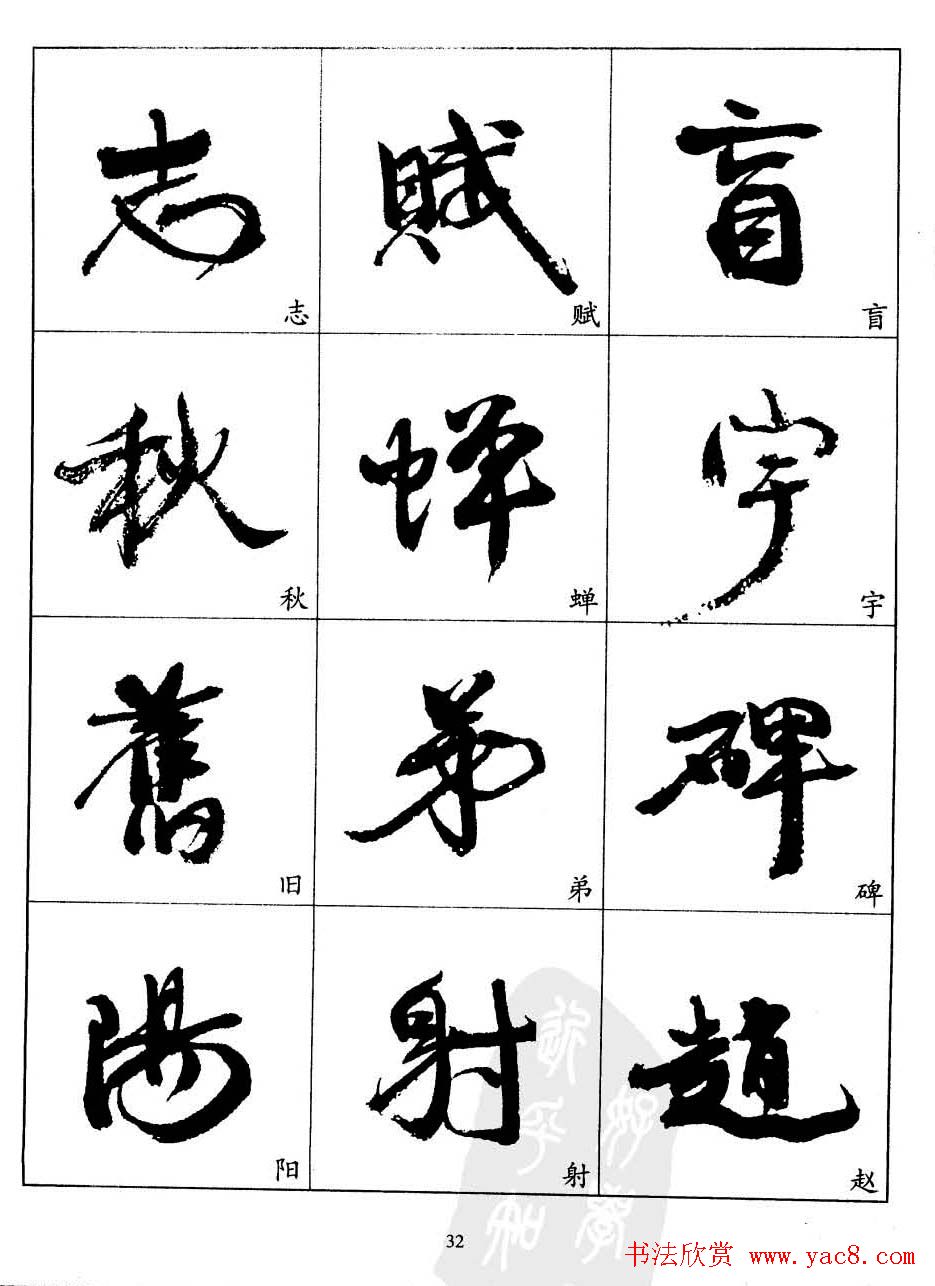 志 賦 盲
志 赋 盲
秋 蟬 宇
秋 蝉 宇
舊 弟 碑
旧 弟 碑
陽 射 趙
阳 射 赵
32
书法欣赏 www.yac8.com